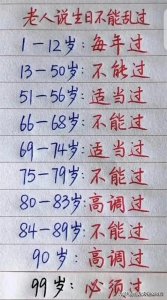 老人说生日不能乱过
1-12岁：每年过
13-50岁：不能过
51-56岁：适当过
66-68岁：不能过
69-74岁：适当过
75-79岁：不能过
80-83岁：高调过
84-89岁：不能过
90岁：高调过
99岁：必须过